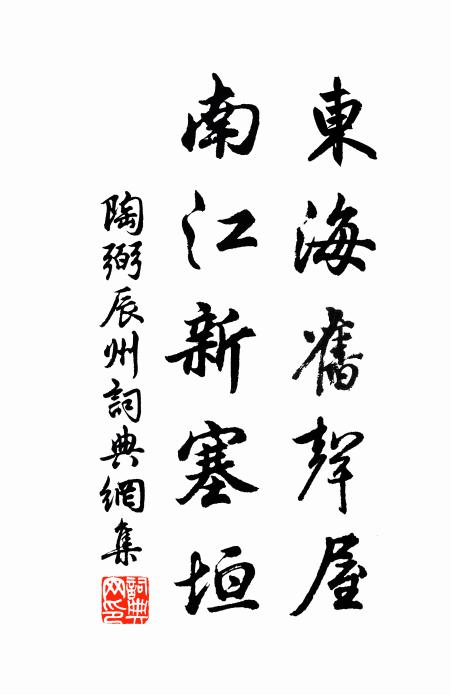 東海舊聲屋
南江新塞垣
陶弼辰州詞典網集